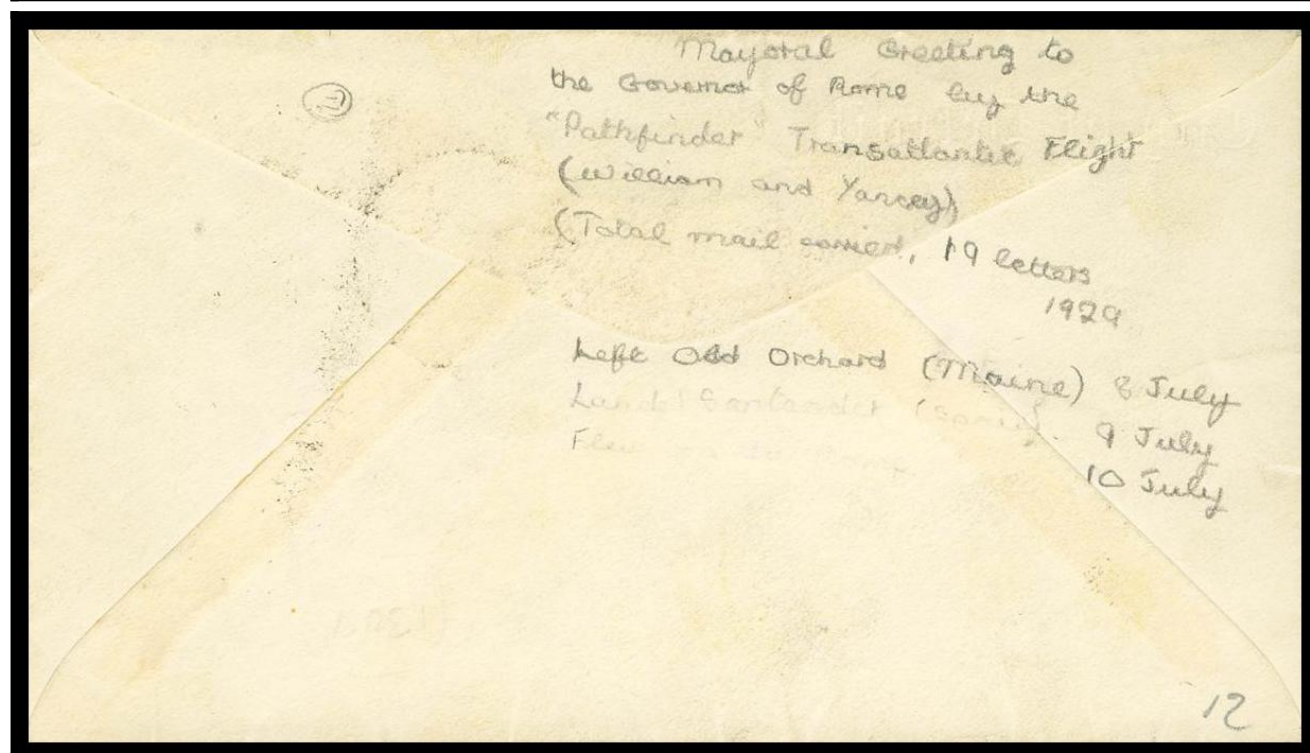 Mayoral Greeting to
the Governor of Rome by the
"Pathfinder" Transatlantic Flight
(William and Yancey)
(Total mail carried, 19 letters
1929
Left Old Orchard (Maine) 8 July
Landed Santander (Spain). 9 July
Flew Rome 10 July
12